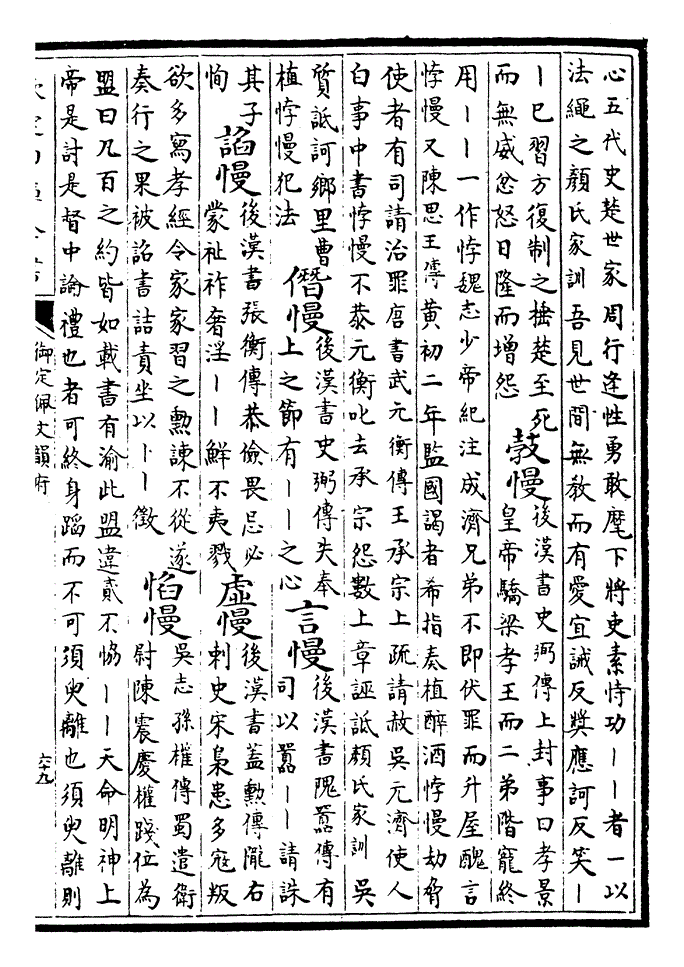 心五代史楚世家周行逢性勇敢麾下將吏素恃功｜｜者一以
法繩之顏氏家訓吾見世間無教而有愛宜誡反獎應訶反笑｜
｜已習方復制之捶楚至死
而無威忿怒日隆而增怨
㪍慢
後漢書史弼傳上封事曰孝景
皇帝驕梁孝王而二弟階寵終
用｜｜一作悖魏志少帝紀注成濟兄弟不即伏罪而升屋醜言
悖慢又陳思王傳黃初二年監國謁者希指奏植醉酒悖慢劫脅
使者有司請治罪唐書武元衡傳王承宗上疏請赦吳元濟使人
白事中書悖慢不恭元衡叱去承宗怨數上章誣詆顏氏家訓吳
質詆訶鄉里曹
植悖慢犯法
僭慢
後漢書史弼傳失奉
上之節有｜｜之心
言慢
後漢書隗囂傳有
司以囂｜｜請誅
其子
恂
謟慢
後漢書張衡傳恭儉畏忌必
蒙祉祚奢淫｜｜鮮不夷戮
虛慢
後漢書蓋勳傳隴右
刺史宋梟患多寇叛
欲多寫孝經令家家習之勳諫不從遂
奏行之果被詔書詰責坐以｜｜徵
慆慢
吳志孫權傳蜀遣衛
尉陳震慶權踐位為
盟曰凡百之約皆如載書有渝此盟違貳不協｜｜天命明神上
帝是討是督中論禮也者可終身蹈而不可須臾離也須臾離則
御定佩文韻府
六十九